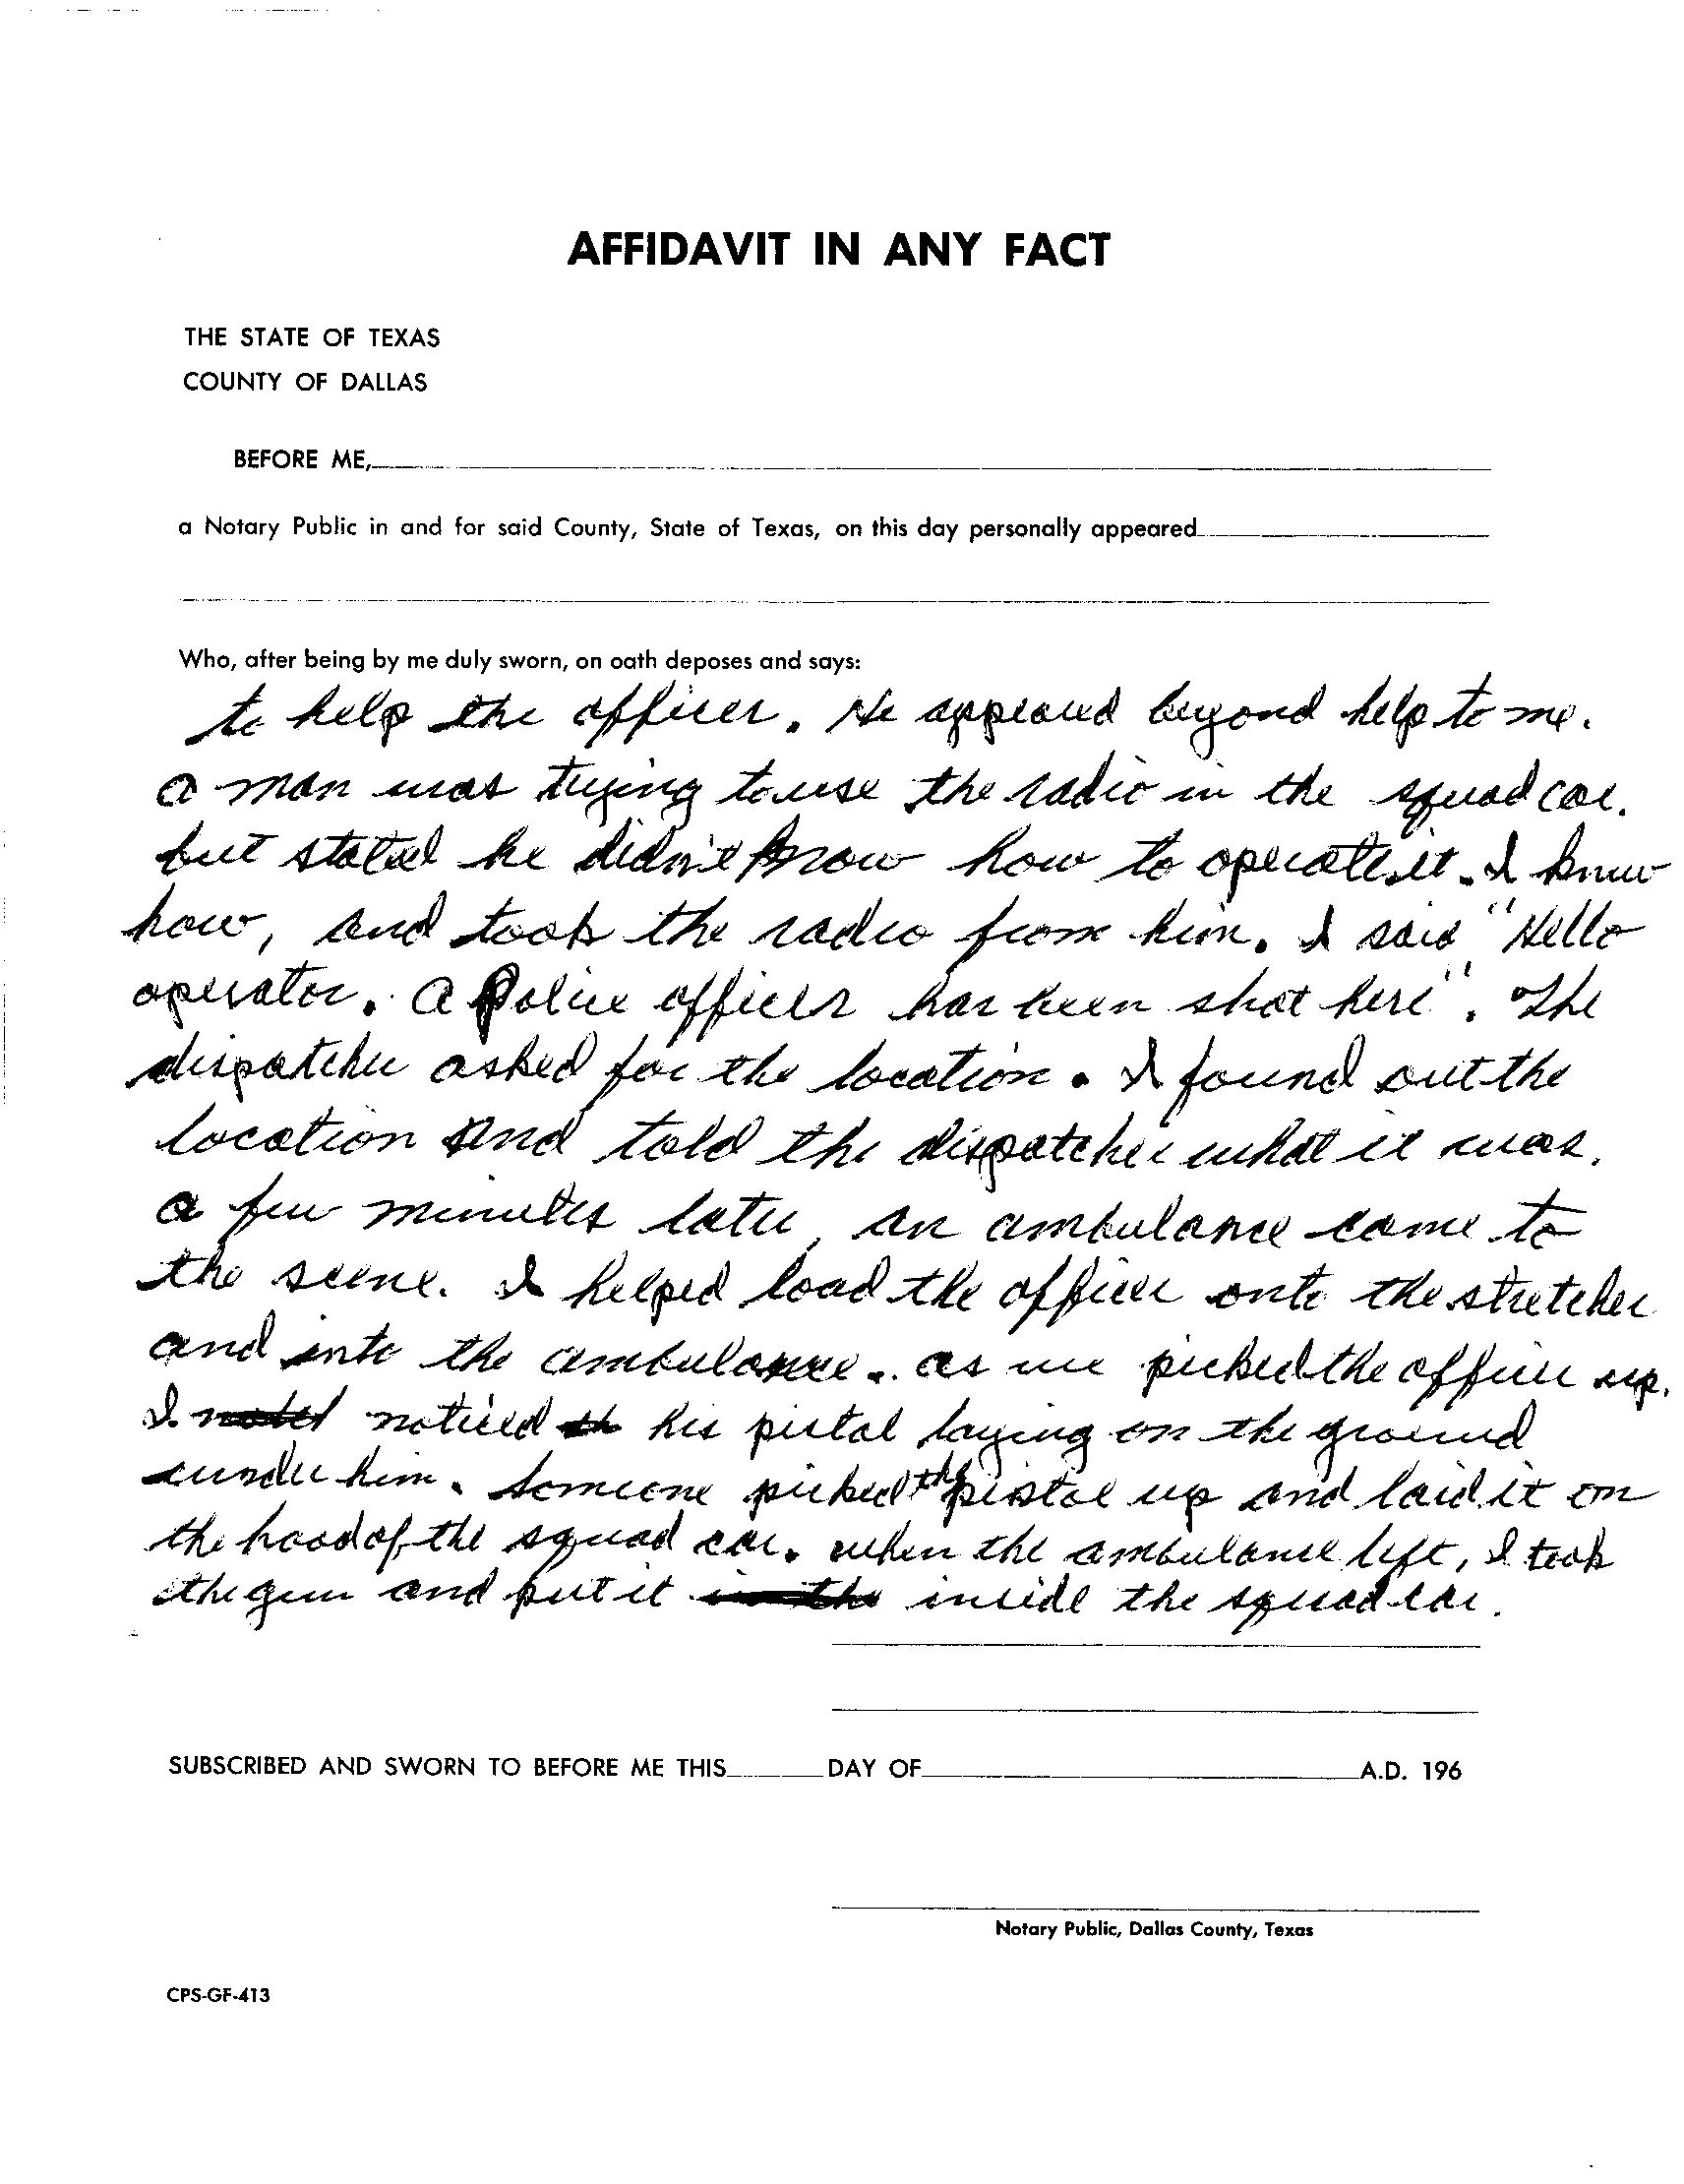 AFFIDAVIT IN ANY FACT
THE STATE OF TEXAS
COUNTY OF DALLAS
BEFORE ME,
a Notary Public in and for said County, State of Texas, on this day personally appeared
Who, after being by me duly sworn, on oath deposes and says:
to help the officer. He appeared beyond help to me.
a man was trying to use the radio in the squad car.
but stated he didn't know how to operate it. I knew
how, and took the radio from him. I said "Hello
operator. a Police officer has been shot here". The
dispatcher asked for the location. I found out the
location and told the dispatcher what it was.
a few minutes later, an ambulance came to
the scene. I helped load the officer onto the stretcher
and into the ambulance. as we picked the officer up.
I noted noticed th his pistol laying on the ground
under him. Someone picked the pistol up and laid it on
the hood of the squad car. when the ambulance left, I took
the gun and put it in the inside the squad car.
SUBSCRIBED AND SWORN TO BEFORE ME THIS DAY OF A.D. 196
Notary Public, Dallas County, Texas
CPS-GF-413